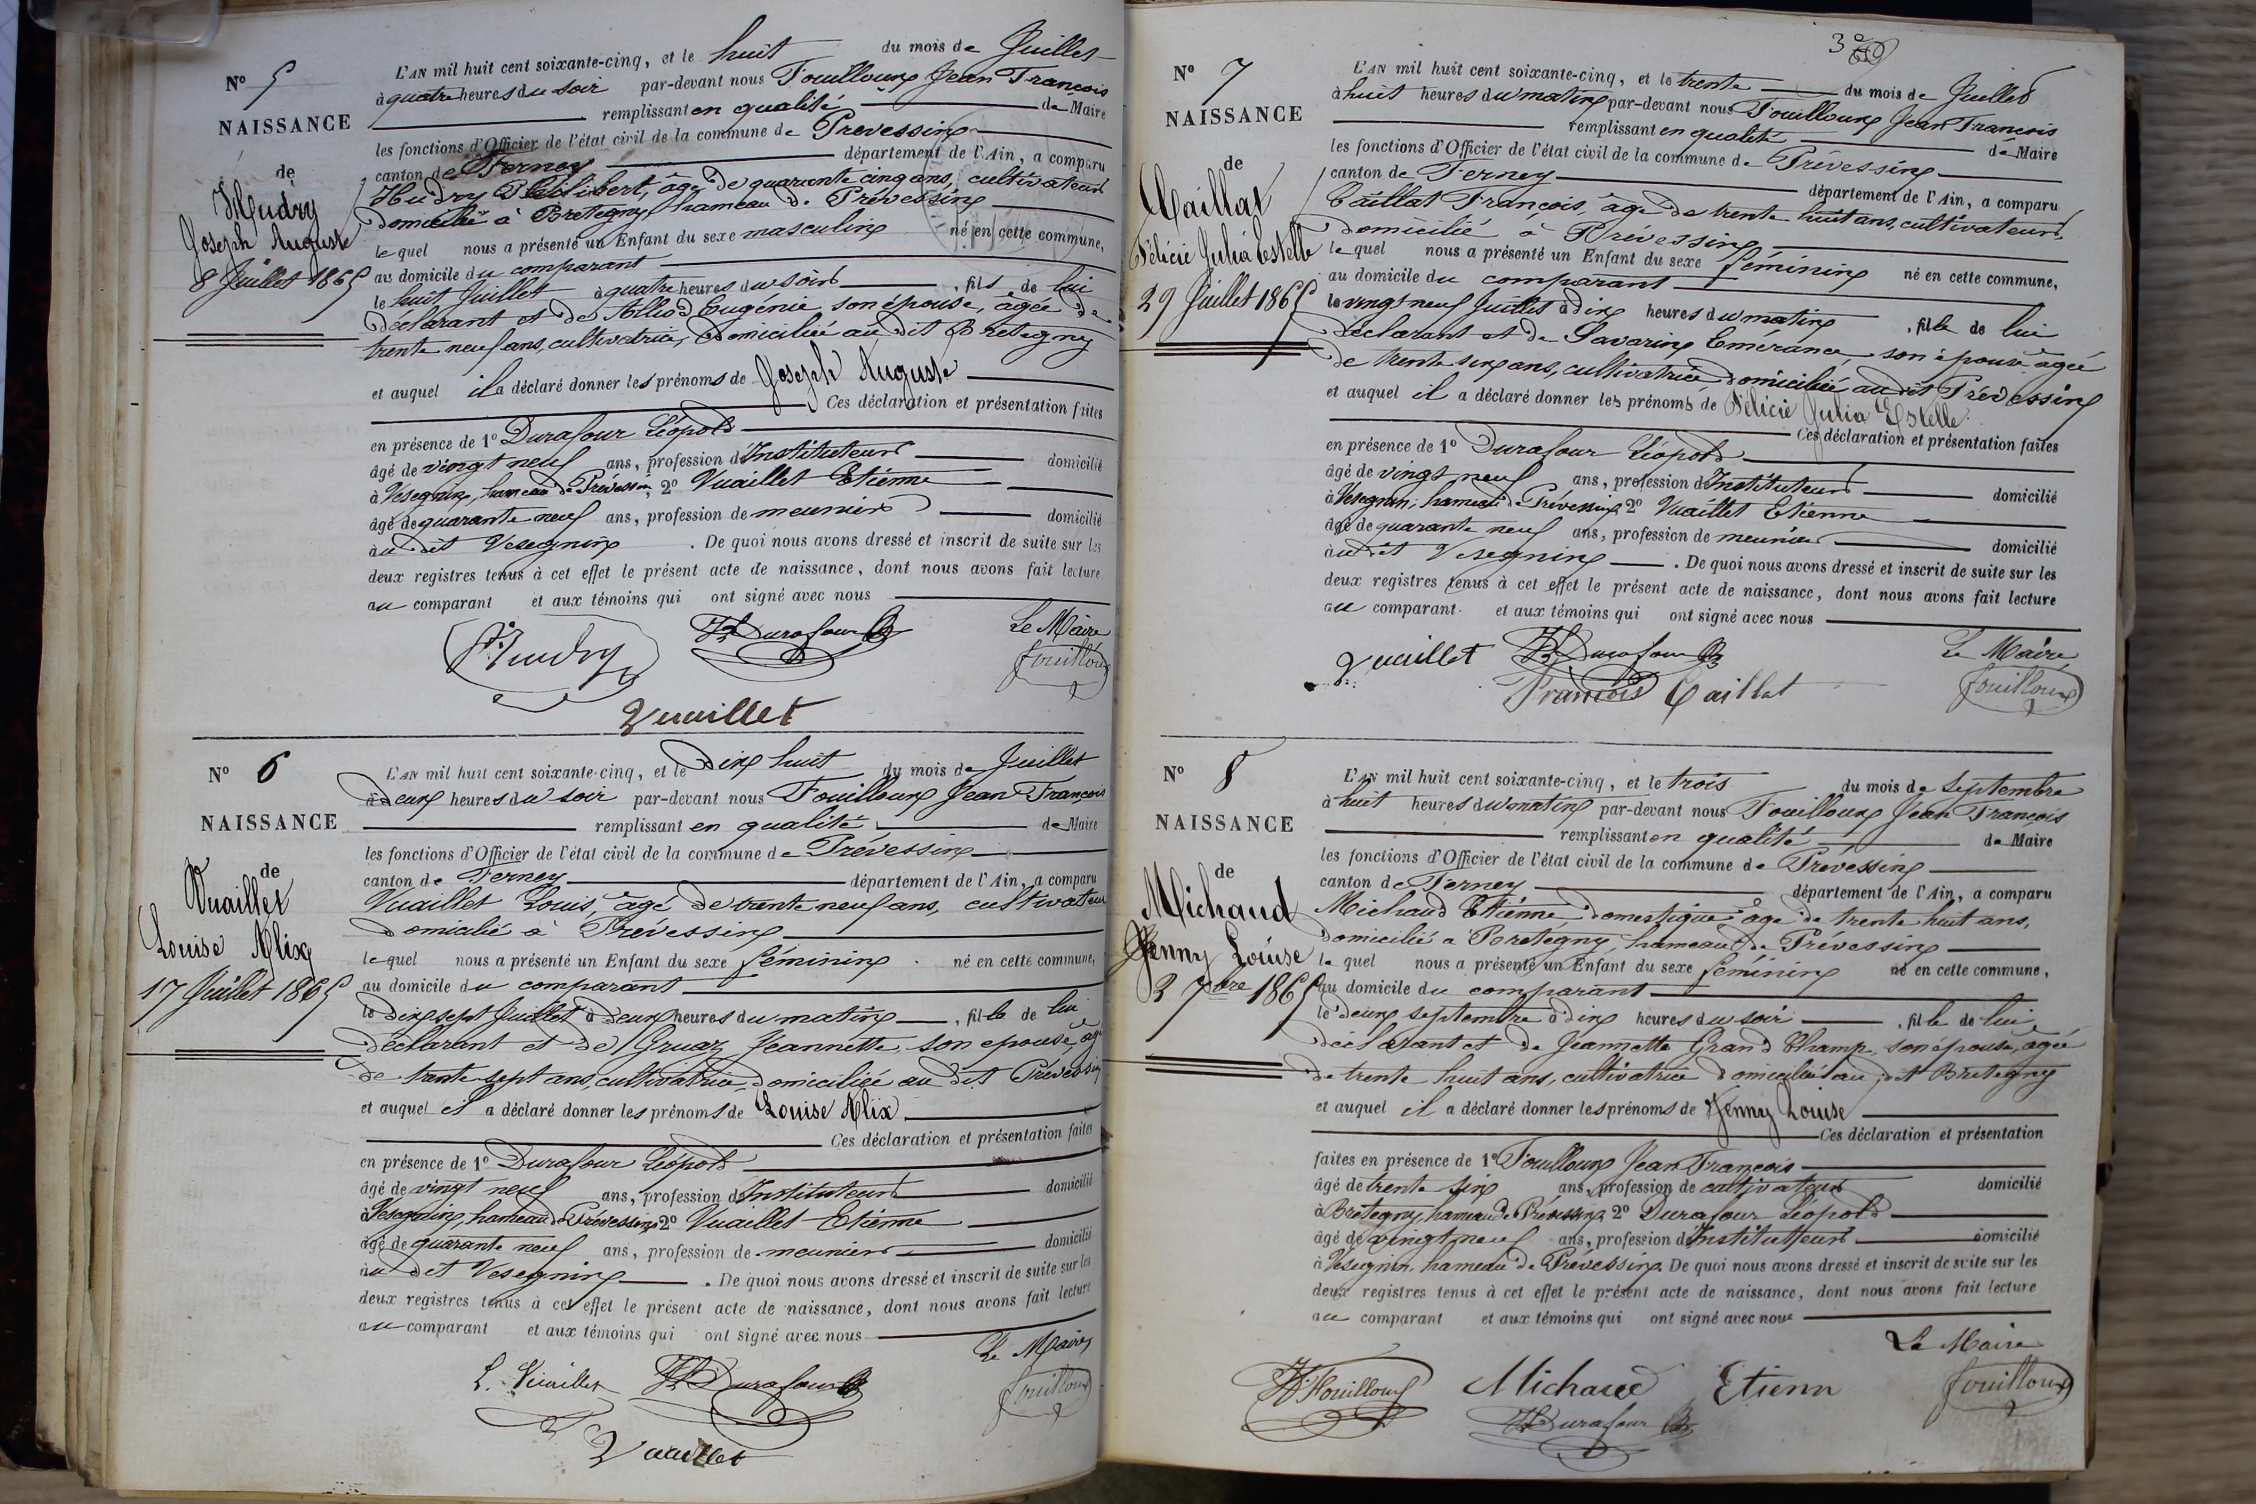 N° 5
NAISSANCE
de
Hudry
Joseph Auguste
8 Juillet 1865
L'AN mil huit cent soixante-cinq, et le huit du mois de Juillet
à quatre heures du soir par-devant nous Fouilloux Jean François
remplissant en qualité de Maire
les fonctions d'Officier de l'état civil de la commune de Prévessin
canton de Ferney département de l'Ain, a comparu
Hudry Philibert, âgé de quarante cinq ans, cultivateur
domicilié à Bretegny, hameau de Prévessin
le quel nous a présenté un Enfant du sexe masculin né en cette commune,
au domicile du comparant
le huit Juillet à quatre heures du soir, fils de lui
déclarant et de Alliod Eugénie son épouse, âgée de
trente neuf ans, cultivatrice, domiciliée au dit Bretegny
et auquel il a déclaré donner les prénoms de Joseph Auguste
Ces déclaration et présentation faites
en présence de 1° Durafour Léopold
âgé de vingt neuf ans, profession d'Instituteur domicilié
à Vésegnin, hameau de Prévessin, 2° Vuaillet Etienne
âgé de quarante neuf ans, profession de meunier domicilié
au dit Vesegnin. De quoi nous avons dressé et inscrit de suite sur les
deux registres tenus à cet effet le présent acte de naissance, dont nous avons fait lecture
au comparant et aux témoins qui ont signé avec nous
Hudry Durafour Le Maire
Fouilloux
Vuaillet
N° 6
NAISSANCE
de
Vuaillet
Louise Alix
17 Juillet 1865
L'AN mil huit cent soixante-cinq, et le dix huit du mois de Juillet
à deux heures du soir par-devant nous Fouilloux Jean François
remplissant en qualité de Maire
les fonctions d'Officier de l'état civil de la commune de Prévessin
canton de Ferney département de l'Ain, a comparu
Vuaillet Louis, âgé de trente neuf ans, cultivateur
domicilié à Prévessin
le quel nous a présenté un Enfant du sexe féminin né en cette commune,
au domicile du comparant
le dix sept Juillet à deux heures du matin, fille de lui
déclarant et de Gruaz Jeannette son épouse, âgée
de trente sept ans, cultivatrice, domiciliée au dit Prévessin
et auquel il a déclaré donner les prénoms de Louise Alix
Ces déclaration et présentation faites
en présence de 1° Durafour Léopold
âgé de vingt neuf ans, profession d'Instituteur domicilié
à Vesegnin, hameau de Prévessin 2° Vuaillet Etienne
âgé de quarante neuf ans, profession de meunier domicilié
au dit Vesegnin. De quoi nous avons dressé et inscrit de suite sur les
deux registres tenus à cet effet le présent acte de naissance, dont nous avons fait lecture
au comparant et aux témoins qui ont signé avec nous
Le Maire
L. Vuaillet Durafour Fouilloux
Vuaillet
N° 7
NAISSANCE
de
Caillat
Félicie Julia Estelle
29 Juillet 1865
L'AN mil huit cent soixante-cinq, et le trente du mois de Juillet
à huit heures du matin par-devant nous Fouilloux Jean François
remplissant en qualité de Maire
les fonctions d'Officier de l'état civil de la commune de Prévessin
canton de Ferney département de l'Ain, a comparu
Caillat François, âgé de trente huit ans, cultivateur,
domicilié à Prévessin
le quel nous a présenté un Enfant du sexe féminin né en cette commune,
au domicile du comparant
le vingt neuf Juillet à dix heures du matin, fille de lui
déclarant et de Savarin Emerance son épouse âgée
de trente six ans, cultivatrice domiciliée au dit Prévessin
et auquel il a déclaré donner les prénoms de Félicie Julia Estelle.
Ces déclaration et présentation faites
en présence de 1° Durafour Léopold
âgé de vingt neuf ans, profession d'Instituteur domicilié
à Vesegnin, hameau de Prévessin 2° Vuaillet Etienne
âgé de quarante neuf ans, profession de meunier domicilié
au dit Vesegnin. De quoi nous avons dressé et inscrit de suite sur les
deux registres tenus à cet effet le présent acte de naissance, dont nous avons fait lecture
au comparant. et aux témoins qui ont signé avec nous
Vuaillet Durafour Le Maire
François Caillat Fouilloux
N° 8
NAISSANCE
de
Michaud
Jenny Louise
2 7bre 1865
L'AN mil huit cent soixante-cinq, et le trois du mois de Septembre
à huit heures du matin par-devant nous Fouilloux Jean François
remplissant en qualité de Maire
les fonctions d'Officier de l'état civil de la commune de Prévessin
canton de Ferney département de l'Ain, a comparu
Michaud Etienne domestique âgé de trente huit ans,
domicilié à Bretegny, hameau de Prévessin
le quel nous a présenté un Enfant du sexe féminin né en cette commune,
au domicile du comparant
le deux septembre à dix heures du soir, fille de lui
déclarant et de Jeannette Grand Champ son épouse, âgée
de trente huit ans, cultivatrice domiciliée au dit Bretegny
et auquel il a déclaré donner les prénoms de Jenny Louise
Ces déclaration et présentation
faites en présence de 1° Fouilloux Jean François
âgé de trente six ans, profession de cultivateur domicilié
à Bretegny, hameau de Prévessin, 2° Durafour Léopold
âgé de vingt neuf ans, profession d'Instituteur domicilié
à Vésegnin, hameau de Prévessin. De quoi nous avons dressé et inscrit de suite sur les
deux registres tenus à cet effet le présent acte de naissance, dont nous avons fait lecture
au comparant et aux témoins qui ont signé avec nous
Le Maire
Fouilloux Michaud Etienn Fouilloux
Durafour